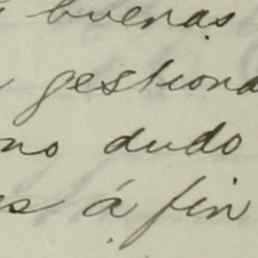 buenas
gestiona
no dudo
es á fin